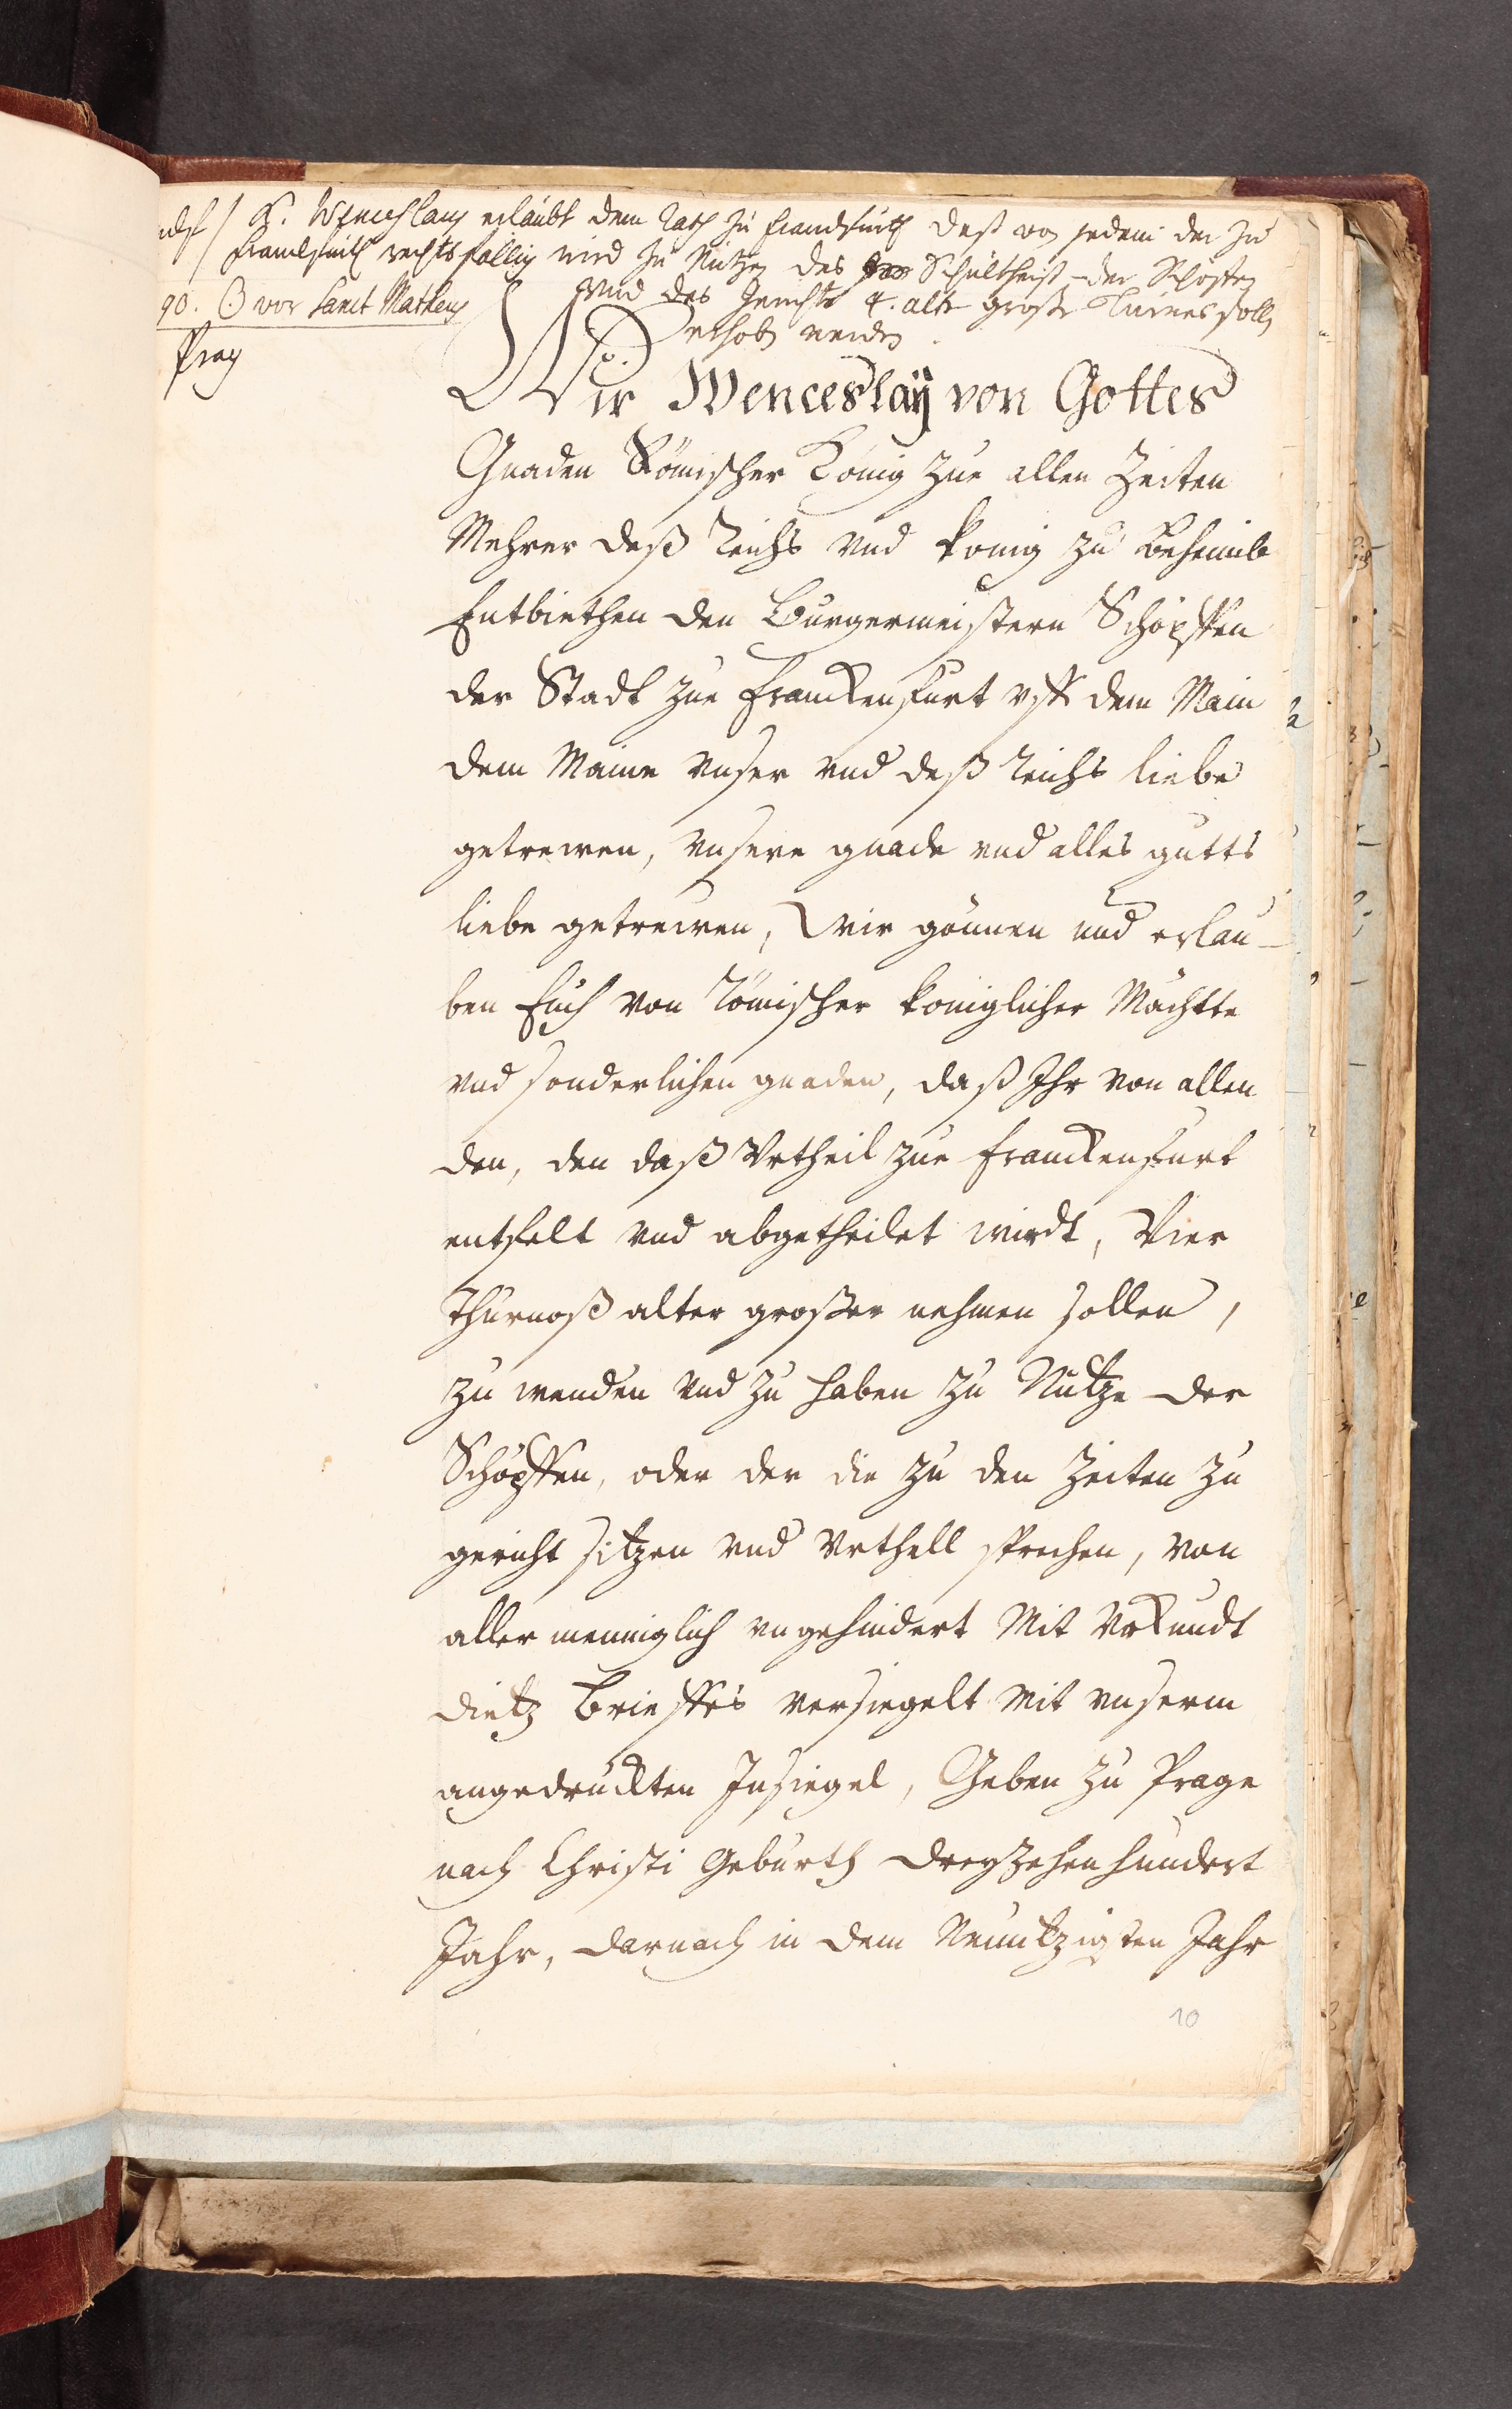 K. Wenceslaus erlaubt dem Rath zu Franckfurth daß von jedem der zu
Franckfurth rechtsfällig wird zu Nutzen des Schultheiß der Schöffen
und des Gerichts 4. alte große Turnes solle
90. ☉ vor Sanct Matheus
erhoben werden.
Prag
Wir Wenceslaÿ von Gottes
Gnaden Römischer König zue allen Zeiten
Mehrer deß Reichs vnd König zu Beheimb
Entbiethen den Burgermeistern Schöpffen
der Stadt zue Franckenfurt vff dem Main
dem Maine vnser vnd deß Reichs liebe
getrewen, vnsere gnade vnd alles gutts
liebe getrewen, Wir gönnen vnd erlau-
ben Euch von Römischer königlicher Mächtte
vnd sonderlichen gnaden, daß Ihr von allen
den, den daß Vrtheil zue Franckenfurt
entfelt vnd abgetheilet wirdt, Vier
Thurnoß alter großer nehmen sollen,
zu wenden vnd zu haben zu Nutze der
Schöpffen, oder der die zu den Zeiten zu
gericht sitzen vnd Vrthell sprechen, von
aller menniglich vngehindert Mit Vrkundt
dietz Brieffes versiegelt Mit vnserm
angedruckten Insiegel, Geben zu Prage
nach Christi Geburth dreyzehenhundert
Jahr, darnach in dem Neuntzigsten Jahr
10